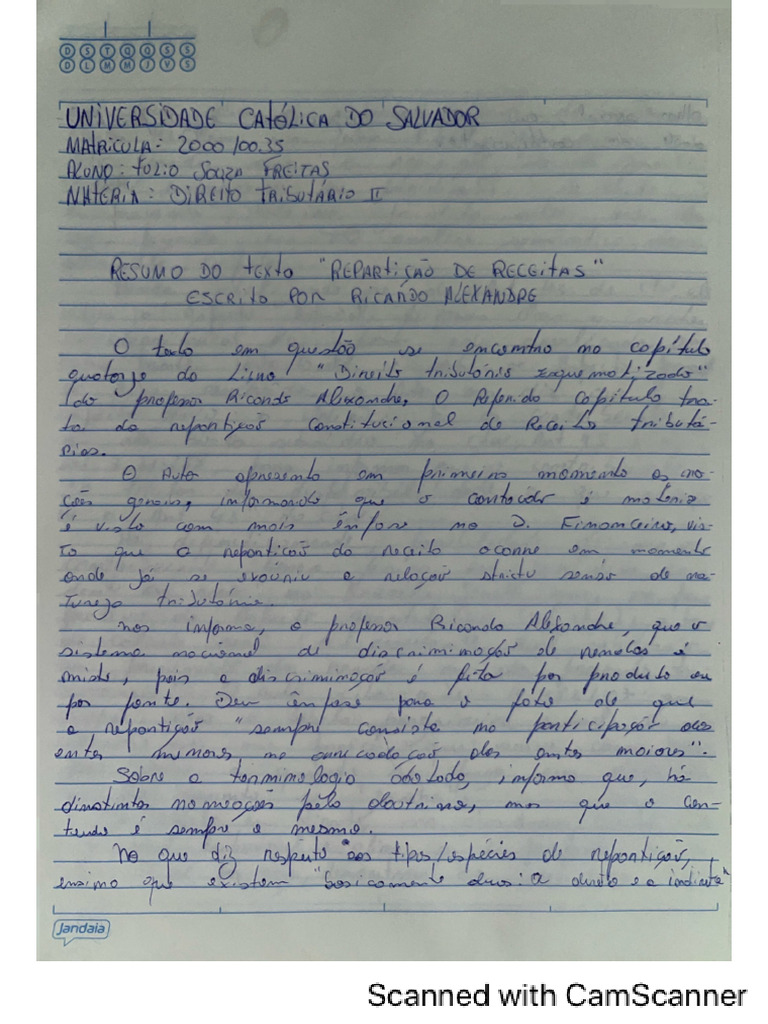 D S T Q Q S S
D L M M J V S
UNIVERSIDADE CATÓLICA DO SALVADOR
MATRICULA: 2000100.35
ALUNO: TULIO SOUZA FREITAS
MATERIA: DIREITO TRIBUTÁRIO II
RESUMO DO TEXTO "REPARTIÇÃO DE RECEITAS"
ESCRITO POR RICARDO ALEXANDRE
O texto em questão se encontra no capítulo
quatorze do Livro "Direito tributário esquematizado"
do professor Ricardo Alexandre. O Referido capítulo tra-
ta da repartição Constitucional de Receita tributá-
rias.
O Autor apresenta em primeiro momento as no-
ções gerais, informando que o conteúdo é matéria
é visto com mais ênfase no D. Financeiro, vis-
to que a repartição da receita ocorre em momento
onde já se exauriu a relação strictu sensu de na-
tureza tributária.
Nos informa, o professor Ricardo Alexandre, que o
sistema nacional de discriminação de rendas é
misto, pois a discriminação é feita por produto ou
por fonte. Deu ênfase para o fato de que
a repartição "sempre consiste na participação dos
entes menores na arrecadação dos entes maiores".
Sobre a terminologia adotada, informa que, há
distintas nomeações pela doutrina, mas que o con-
teudo é sempre o mesmo.
No que diz respeito aos tipos/espécies de repartição,
ensina que existem "basicamente duas: a direta e a indireta"
Jandaia
Scanned with CamScanner